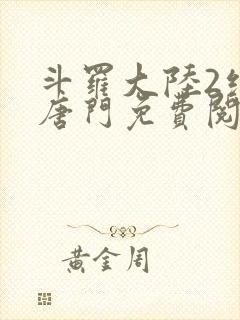 斗羅大陸2
唐門免費閱
黃金周